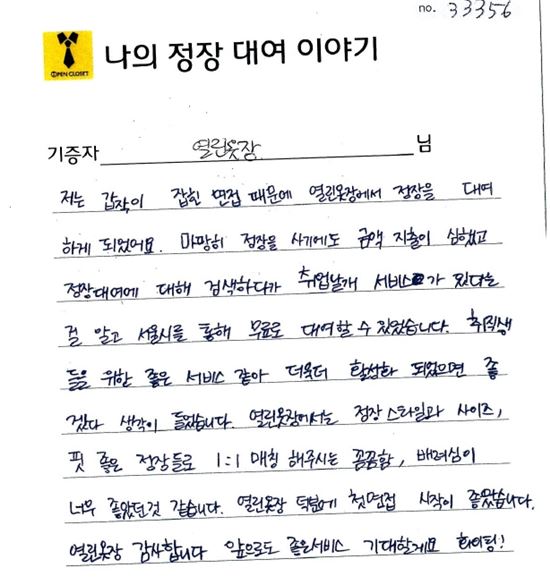 no. 33356
OPEN CLOSET
나의 정장 대여 이야기
기증자 열린옷장 님
저는 갑작이 잡힌 면접 때문에 열린옷장에서 정장을 대여
하게 되었어요. 마땅히 정장을 사기에도 금액 지출이 심했고
정장대여에 대해 검색하다가 취업날개 서비스가 있다는
걸 알고 서울시를 통해 무료로 대여할 수 있었습니다. 취직생
들을 위한 좋은 서비스 같아 더욱더 활성화 되었으면 좋
겠다 생각이 들었습니다. 열린옷장에서는 정장 스타일과 사이즈,
핏 좋은 정장들로 1:1 매칭 해주시는 꼼꼼함, 배려심이
너무 좋았던것 같습니다. 열린옷장 덕분에 첫면접 시작이 좋았습니다.
열린옷장 감사합니다 앞으로도 좋은서비스 기대할게요 화이팅!